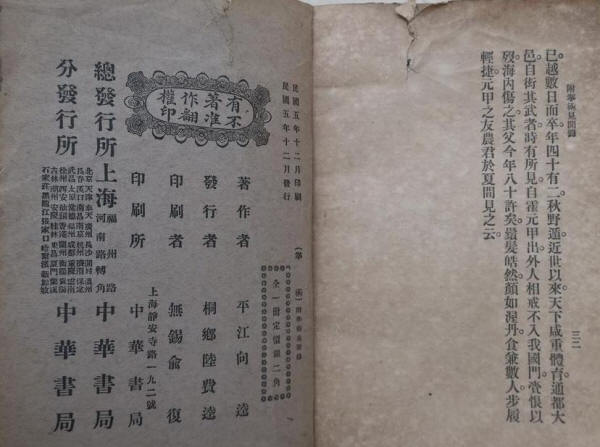 附拳術見聞錄
三二
已越數日而卒年四十有二秋野遁近世以來天下咸重體育通都大
邑自衒其武者時有所見自霍元甲出外人相戒不入我國門嘗恨以
歿海內傷之其父今年八十許矣鬚髮皓然顏如渥丹食兼數人步履
輕捷元甲之友農君於夏間見之云
民國五年十二月印刷
民國五年十二月發行
有著作權
不准翻印
(拳術)附拳術見聞錄
全一冊定價銀二角
著作者 平江向逵
發行者 桐鄉陸費逵
印刷者 無錫俞復
印刷所 上海靜安寺路一九二號 中華書局
總發行所 上海福州路河南路轉角 中華書局
分發行所 中華書局